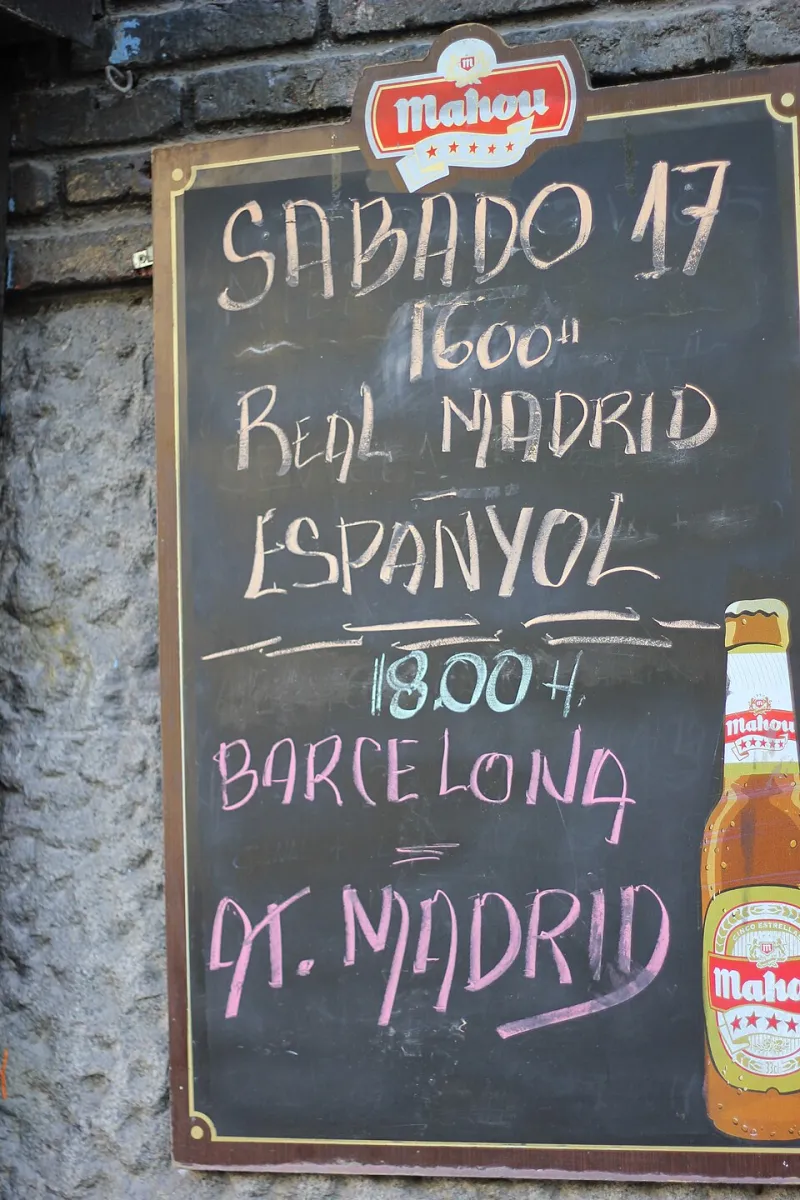 Mahou
SABADO 17
1600H
REAL MADRID
ESPANYOL
18.00 H
BARCELONA
AT. MADRID
Mahou
CINCO ESTRELLA
Maho
33cl